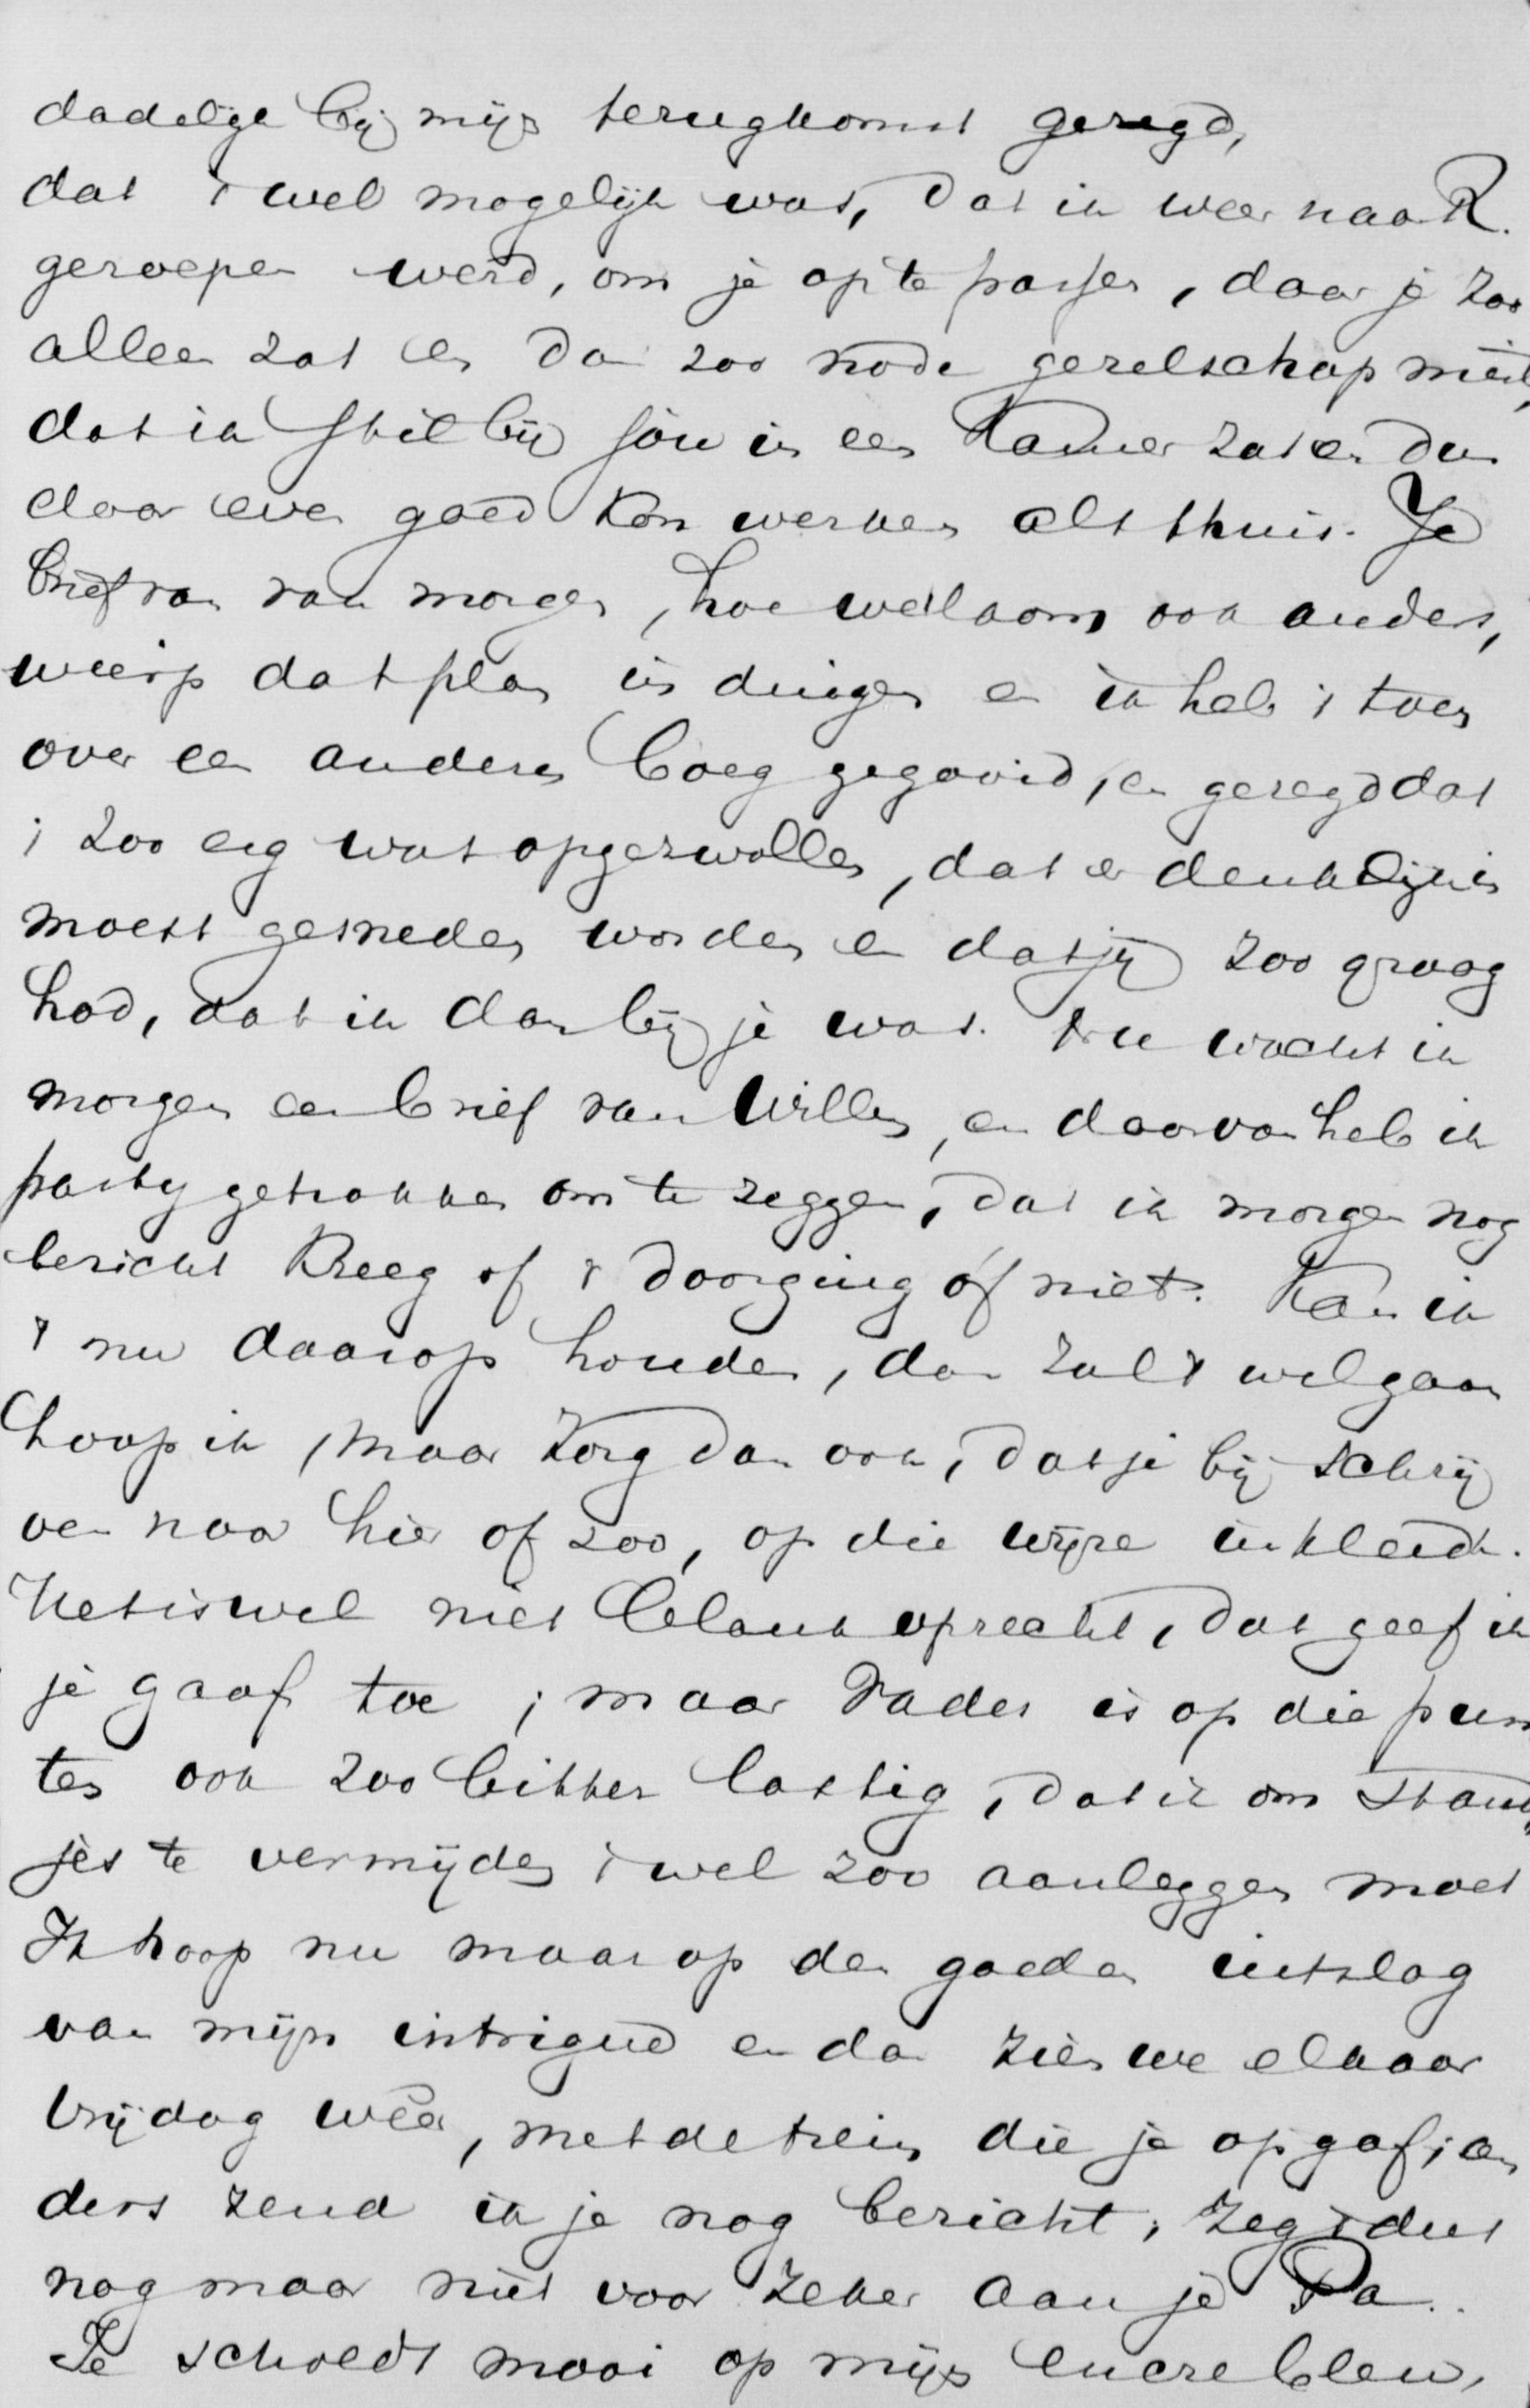 dadelijk bij mijn terugkomst gezegd,
dat 't wel mogelijk was, dat ik weer naar R.
geroepen werd, om je op te passen, daar je zoo
alleen zat en dan zoo node gezelschap miste,
dat ik stil bij jou in een kamer zat en dan
daar even goed kon werken als thuis. Je
brief van van morgen, hoe welkom ook anders,
wierp dat plan in duigen en ik heb 't toen
over een anderen boeg gegooid, en gezegd dat
't zoo erg was opgezwollen, dat er denkelijk in
moest gesneden worden en dat jij zoo graag
had, dat ik dan bij je was. Nu wacht ik
morgen een brief van Willem, en daarvan heb ik
partij getrokken om te zeggen, dat ik morgen nog
bericht kreeg of 't doorging óf niet. Kan ik
't nu daarop houden, dan zal 't wel gaan
hoop ik, maar zorg dan ook, dat je bij schrij
ven naar hier of zoo, op die wijze inkleedt.
Het is wel niet blank oprecht, dat geef ik
je gaaf toe; maar Vader is op die pun
ten ook zoo bitter lastig, dat ik om stand
jes te vermijden 't wel zoo aanleggen moet
Ik hoop nu maar op den goeden uitslag
van mijn intrigue en dan zien we elkaar
Vrijdag weêr, met de trein die je opgaf; an
ders zend ik je nog bericht; zeg 't dus
nog maar niet voor zeker aan je Pa.
Je scheldt mooi op mijn encre bleu,